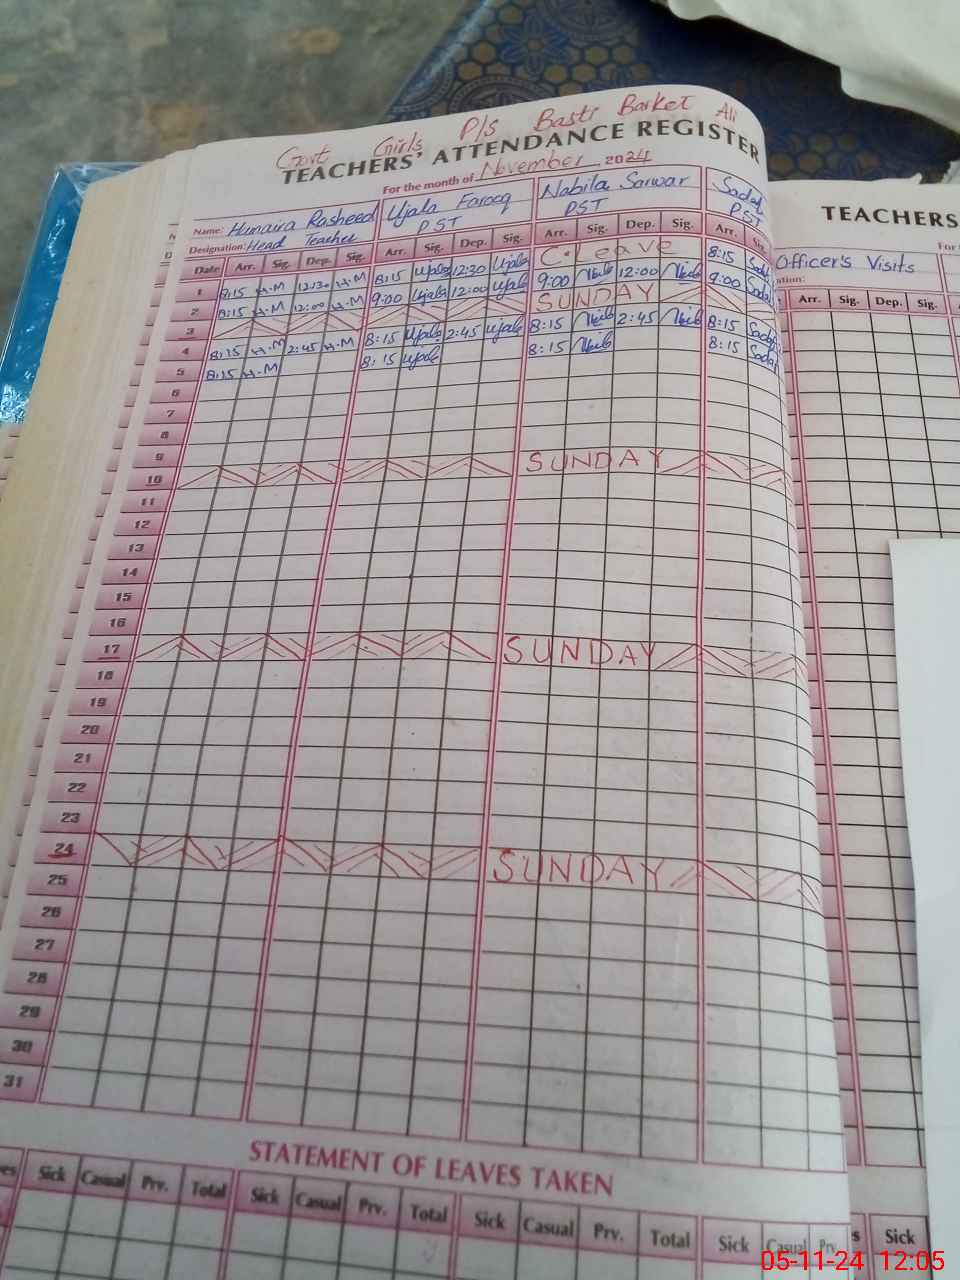 Govt Girls P/S Basti Barket Ali
TEACHERS' ATTENDANCE REGISTER
For the month of November 2024
Name: Humaira Rasheed Ujala Farooq Nabila Sarwar Sadaf
Designation: Head Teacher PST PST PST
Date Arr. Sig. Dep. Sig. Arr. Sig. Dep. Sig. Arr. Sig. Dep. Sig. Arr. Sig.
1 8:15 H.M 12:30 H.M 8:15 Ujala 12:30 Ujala C.Leave 8:15 Sadaf
2 8:15 H.M 12:00 H.M 9:00 Ujala 12:00 Ujala 9:00 12:00 9:00 Sadaf
3 SUNDAY
4 8:15 H.M 2:45 H.M 8:15 Ujala 2:45 Ujala 8:15 2:45 8:15 Sadaf
5 8:15 H.M 8:15 Ujala 8:15 8:15 Sadaf
6
7
8
9
10 SUNDAY
11
12
13
14
15
16
17 SUNDAY
18
19
20
21
22
23
24 SUNDAY
25
26
27
28
29
30
31
STATEMENT OF LEAVES TAKEN
Sick Casual Prv. Total Sick Casual Prv. Total Sick Casual Prv. Total Sick Casual Prv.
TEACHERS
For
Officer's Visits
Arr. Sig. Dep. Sig.
Sick
05-11-24 12:05